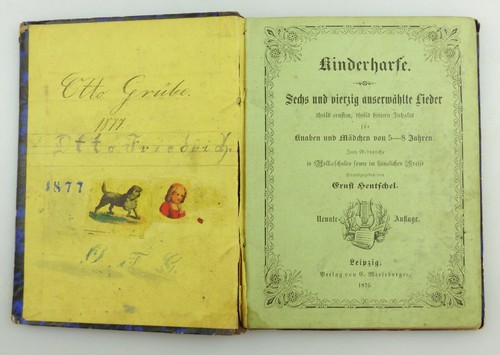 Otto Grube.
1877.
Otto Friedrich
1877
O F G
Kinderharfe.
Sechs und vierzig auserwählte Lieder
theils ernsten, theils heitern Inhalts
für
Knaben und Mädchen von 5—8 Jahren.
Zum Gebrauche
in Volksschulen sowie im häuslichen Kreise
herausgegeben von
Ernst Hentschel.
Neunte Auflage.
Leipzig.
Verlag von C. Merseburger.
1876